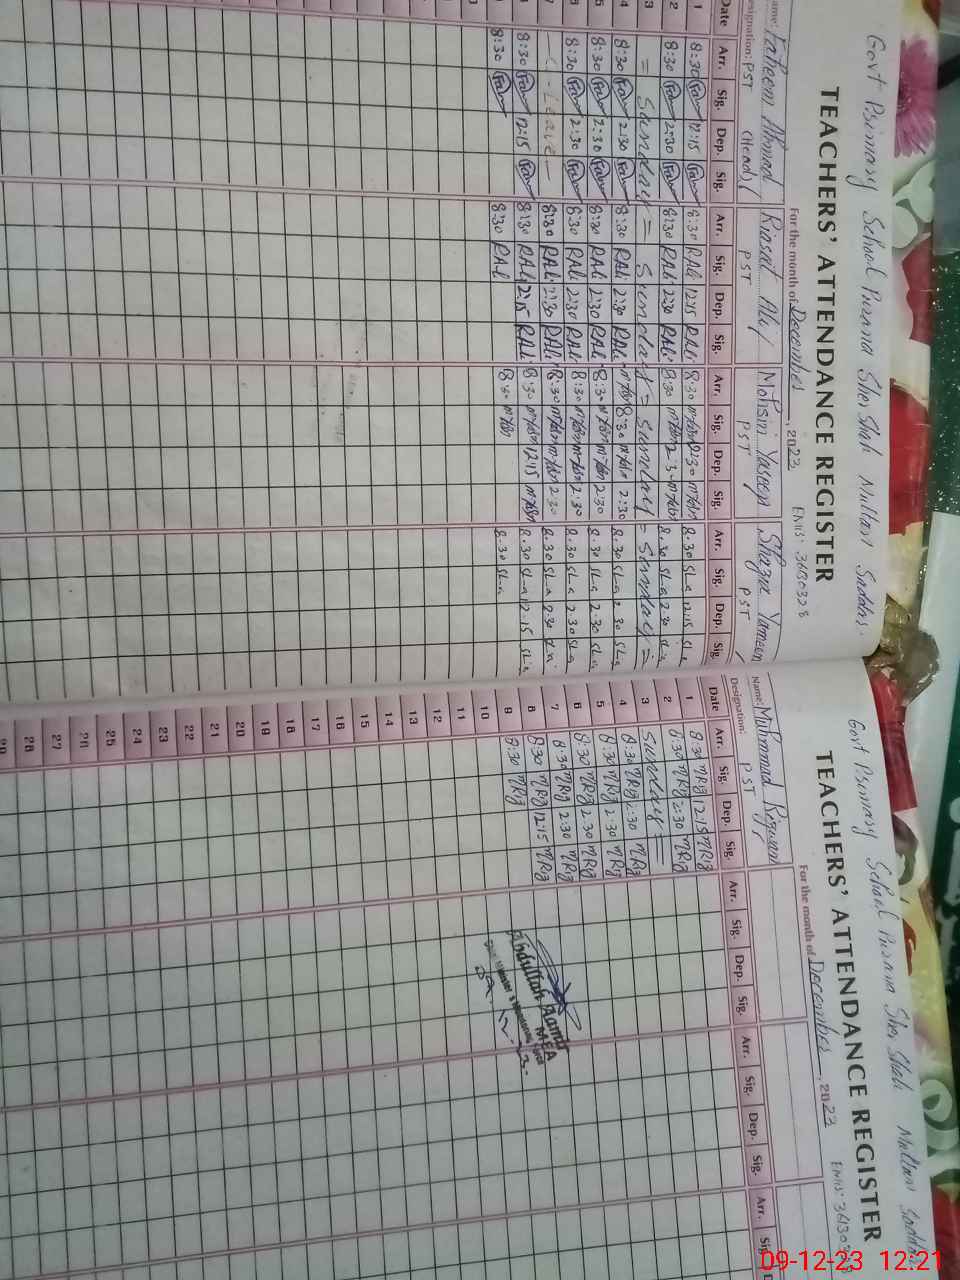 Govt Primary School Purana Sher Shah Multan Saddar.
TEACHERS' ATTENDANCE REGISTER
For the month of December, 2023
EMIS: 36130328
Name: Faheem Ahmad Riasat Ali Mohsin Yaseen Shazia Yameen
Designation: PST (Head) PST PST PST
Date Arr. Sig. Dep. Sig. Arr. Sig. Dep. Sig. Arr. Sig. Dep. Sig. Arr. Sig. Dep. Sig.
1 8:30 12:15 8:30 RAli 12:15 RAli 8:30 8:30 12:15
2 8:30 2:30 8:30 RAli 2:30 RAli 8:30 2:30 8:30 2:30
3 = Sunday = Sunday = Sunday = Sunday =
4 8:30 2:30 8:30 RAli 2:30 RAli 8:30 2:30 8:30 2:30
5 8:30 2:30 8:30 RAli 2:30 RAli 8:30 2:30 8:30 2:30
6 8:30 2:30 8:30 RAli 2:30 RAli 8:30 2:30 8:30 2:30
7 - C - Leave - 8:30 RAli 2:30 RAli 8:30 2:30 8:30 2:30
8 8:30 12:15 8:30 RAli 12:15 RAli 8:30 12:15 8:30 12:15
9 8:30 8:30 RAli 8:30 8:30
Govt Primary School Purana Sher Shah Multan Saddar
TEACHERS' ATTENDANCE REGISTER
For the month of December, 2023
EMIS: 36130328
Name: Muhmmad Rizwan
Designation: PST
Date Arr. Sig. Dep. Sig. Arr. Sig. Dep. Sig. Arr. Sig. Dep. Sig. Arr. Sig. D
1 8:30 MRiz 12:15 MRiz
2 8:30 MRiz 2:30 MRiz
3 Sunday =
4 8:30 MRiz 2:30 MRiz
5 8:30 MRiz 2:30 MRiz
6 8:30 MRiz 2:30 MRiz
7 8:30 MRiz 2:30 MRiz
8 8:30 MRiz 12:15 MRiz
9 8:30 MRiz
10
11
12
13
14
15
16
17
18
19
20
21
22
23
24
25
26
27
28
29
Abdullah Aamir
MEA
09-12-23 12:21